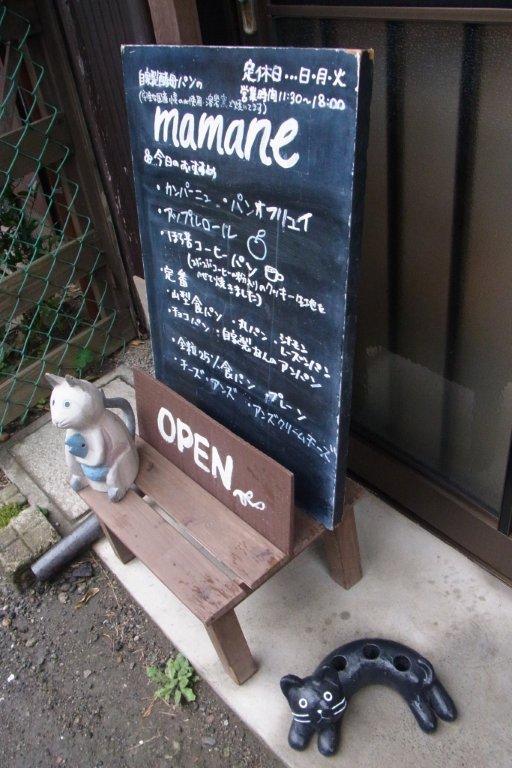 自家製酵母パンの
定休日…日・月・火
営業時間 11:30〜18:00
mamane
今日のおすすめ
・カンパーニュ ・パンオフリュイ
・アップルロール
・ほろ苦コーヒーパン
(つぶつぶコーヒーの粉入りのクッキー生地を
のせて焼きました)
・定番
・山型食パン ・丸パン ・シナモンレーズンパン
・チョコパン ・自家製あんのアンパン
・全粒25%食パン プレーン
・チーズ・アンズ ・アンズクリームチーズ
OPEN